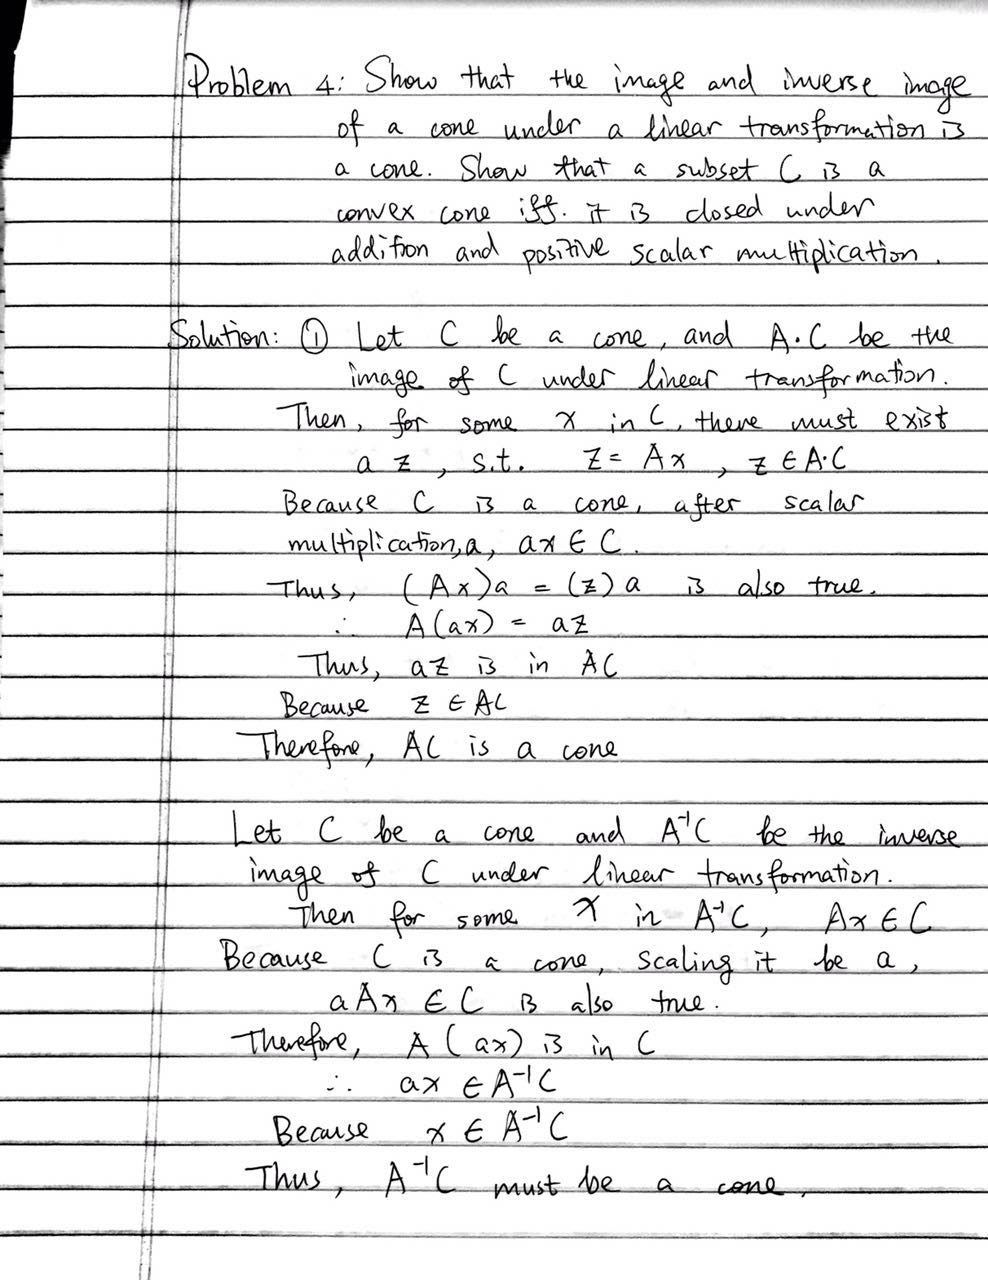 Problem 4: Show that the image and inverse image
of a cone under a linear transformation is
a cone. Show that a subset C is a
convex cone iff. it is closed under
addition and positive scalar multiplication.
Solution: ① Let C be a cone, and A·C be the
image of C under linear transformation.
Then, for some x in C, there must exist
a z, s.t. z = Ax, z ∈ A·C
Because C is a cone, after scalar
multiplication, a, ax ∈ C.
Thus, (Ax)a = (z)a is also true.
∴ A(ax) = az
Thus, az is in AC
Because z ∈ AC
Therefore, AC is a cone
Let C be a cone and A⁻¹C be the inverse
image of C under linear transformation.
Then for some x in A⁻¹C, Ax ∈ C
Because C is a cone, scaling it be a,
aAx ∈ C is also true.
Therefore, A(ax) is in C
∴ ax ∈ A⁻¹C
Because x ∈ A⁻¹C
Thus, A⁻¹C must be a cone.